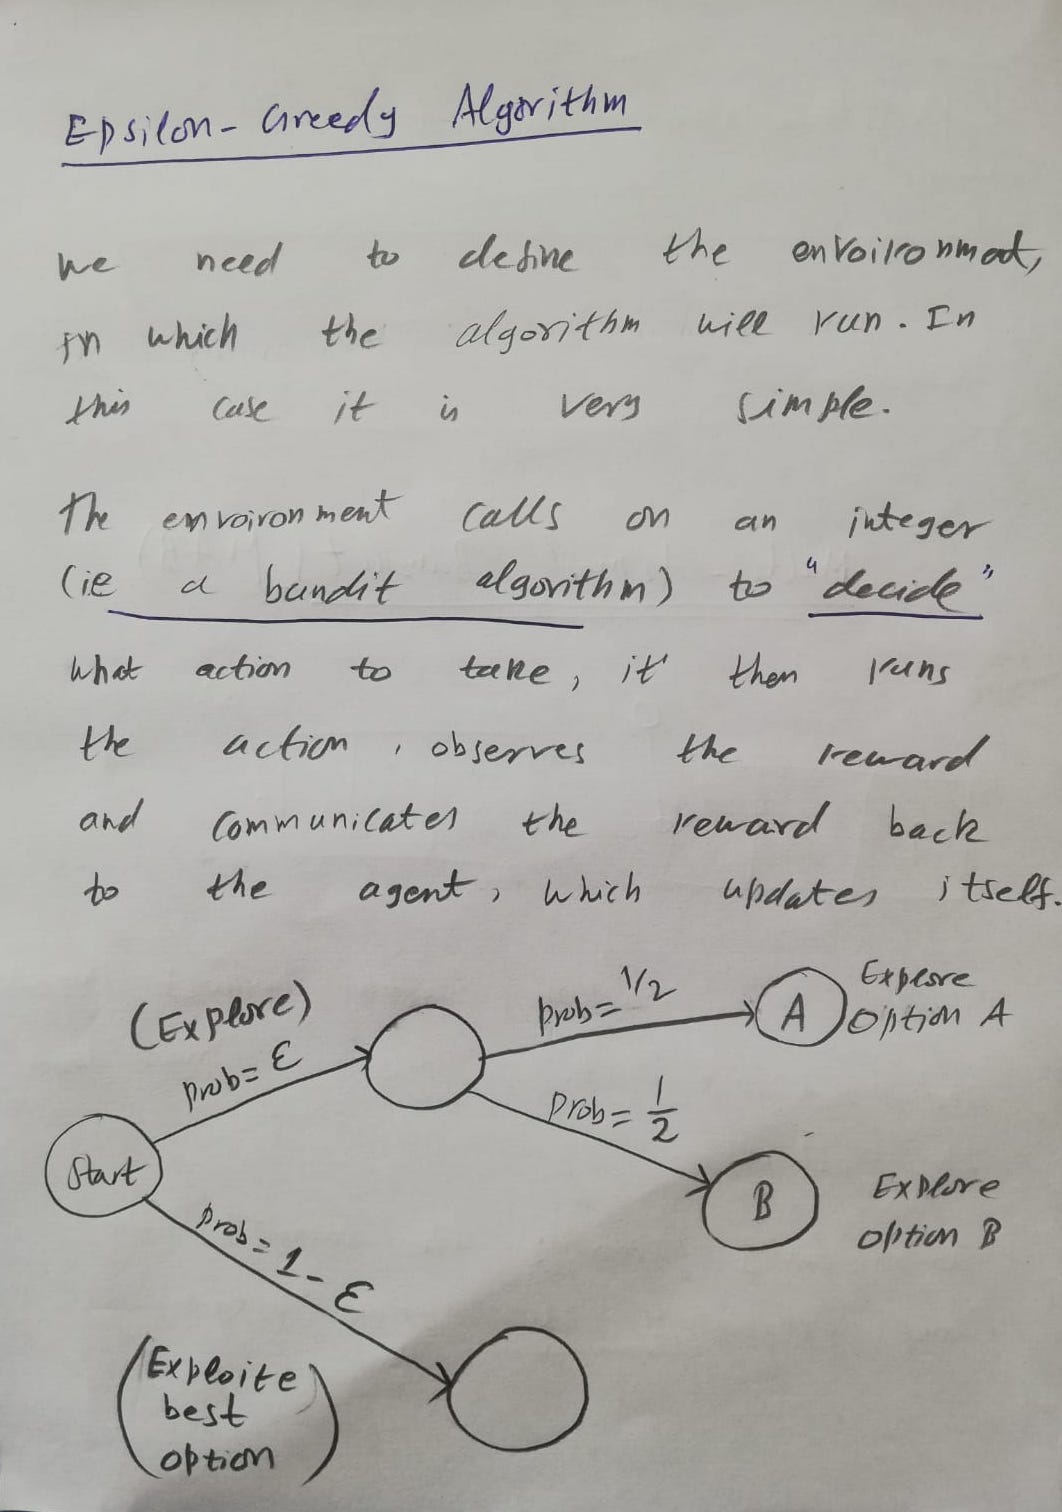 Epsilon-Greedy Algorithm
we need to define the envoironmat,
in which the algorithm will run. In
this case it is very simple.
The envoironment calls on an integer
(ie a bandit algorithm) to "decide"
what action to take, it then runs
the action, observes the reward
and communicates the reward back
to the agent, which updates itself.
(Explore)
prob= ε
prob= 1/2
A
Explore
option A
prob= 1/2
Start
B
Explore
option B
prob= 1-ε
(Exploite
best
option)